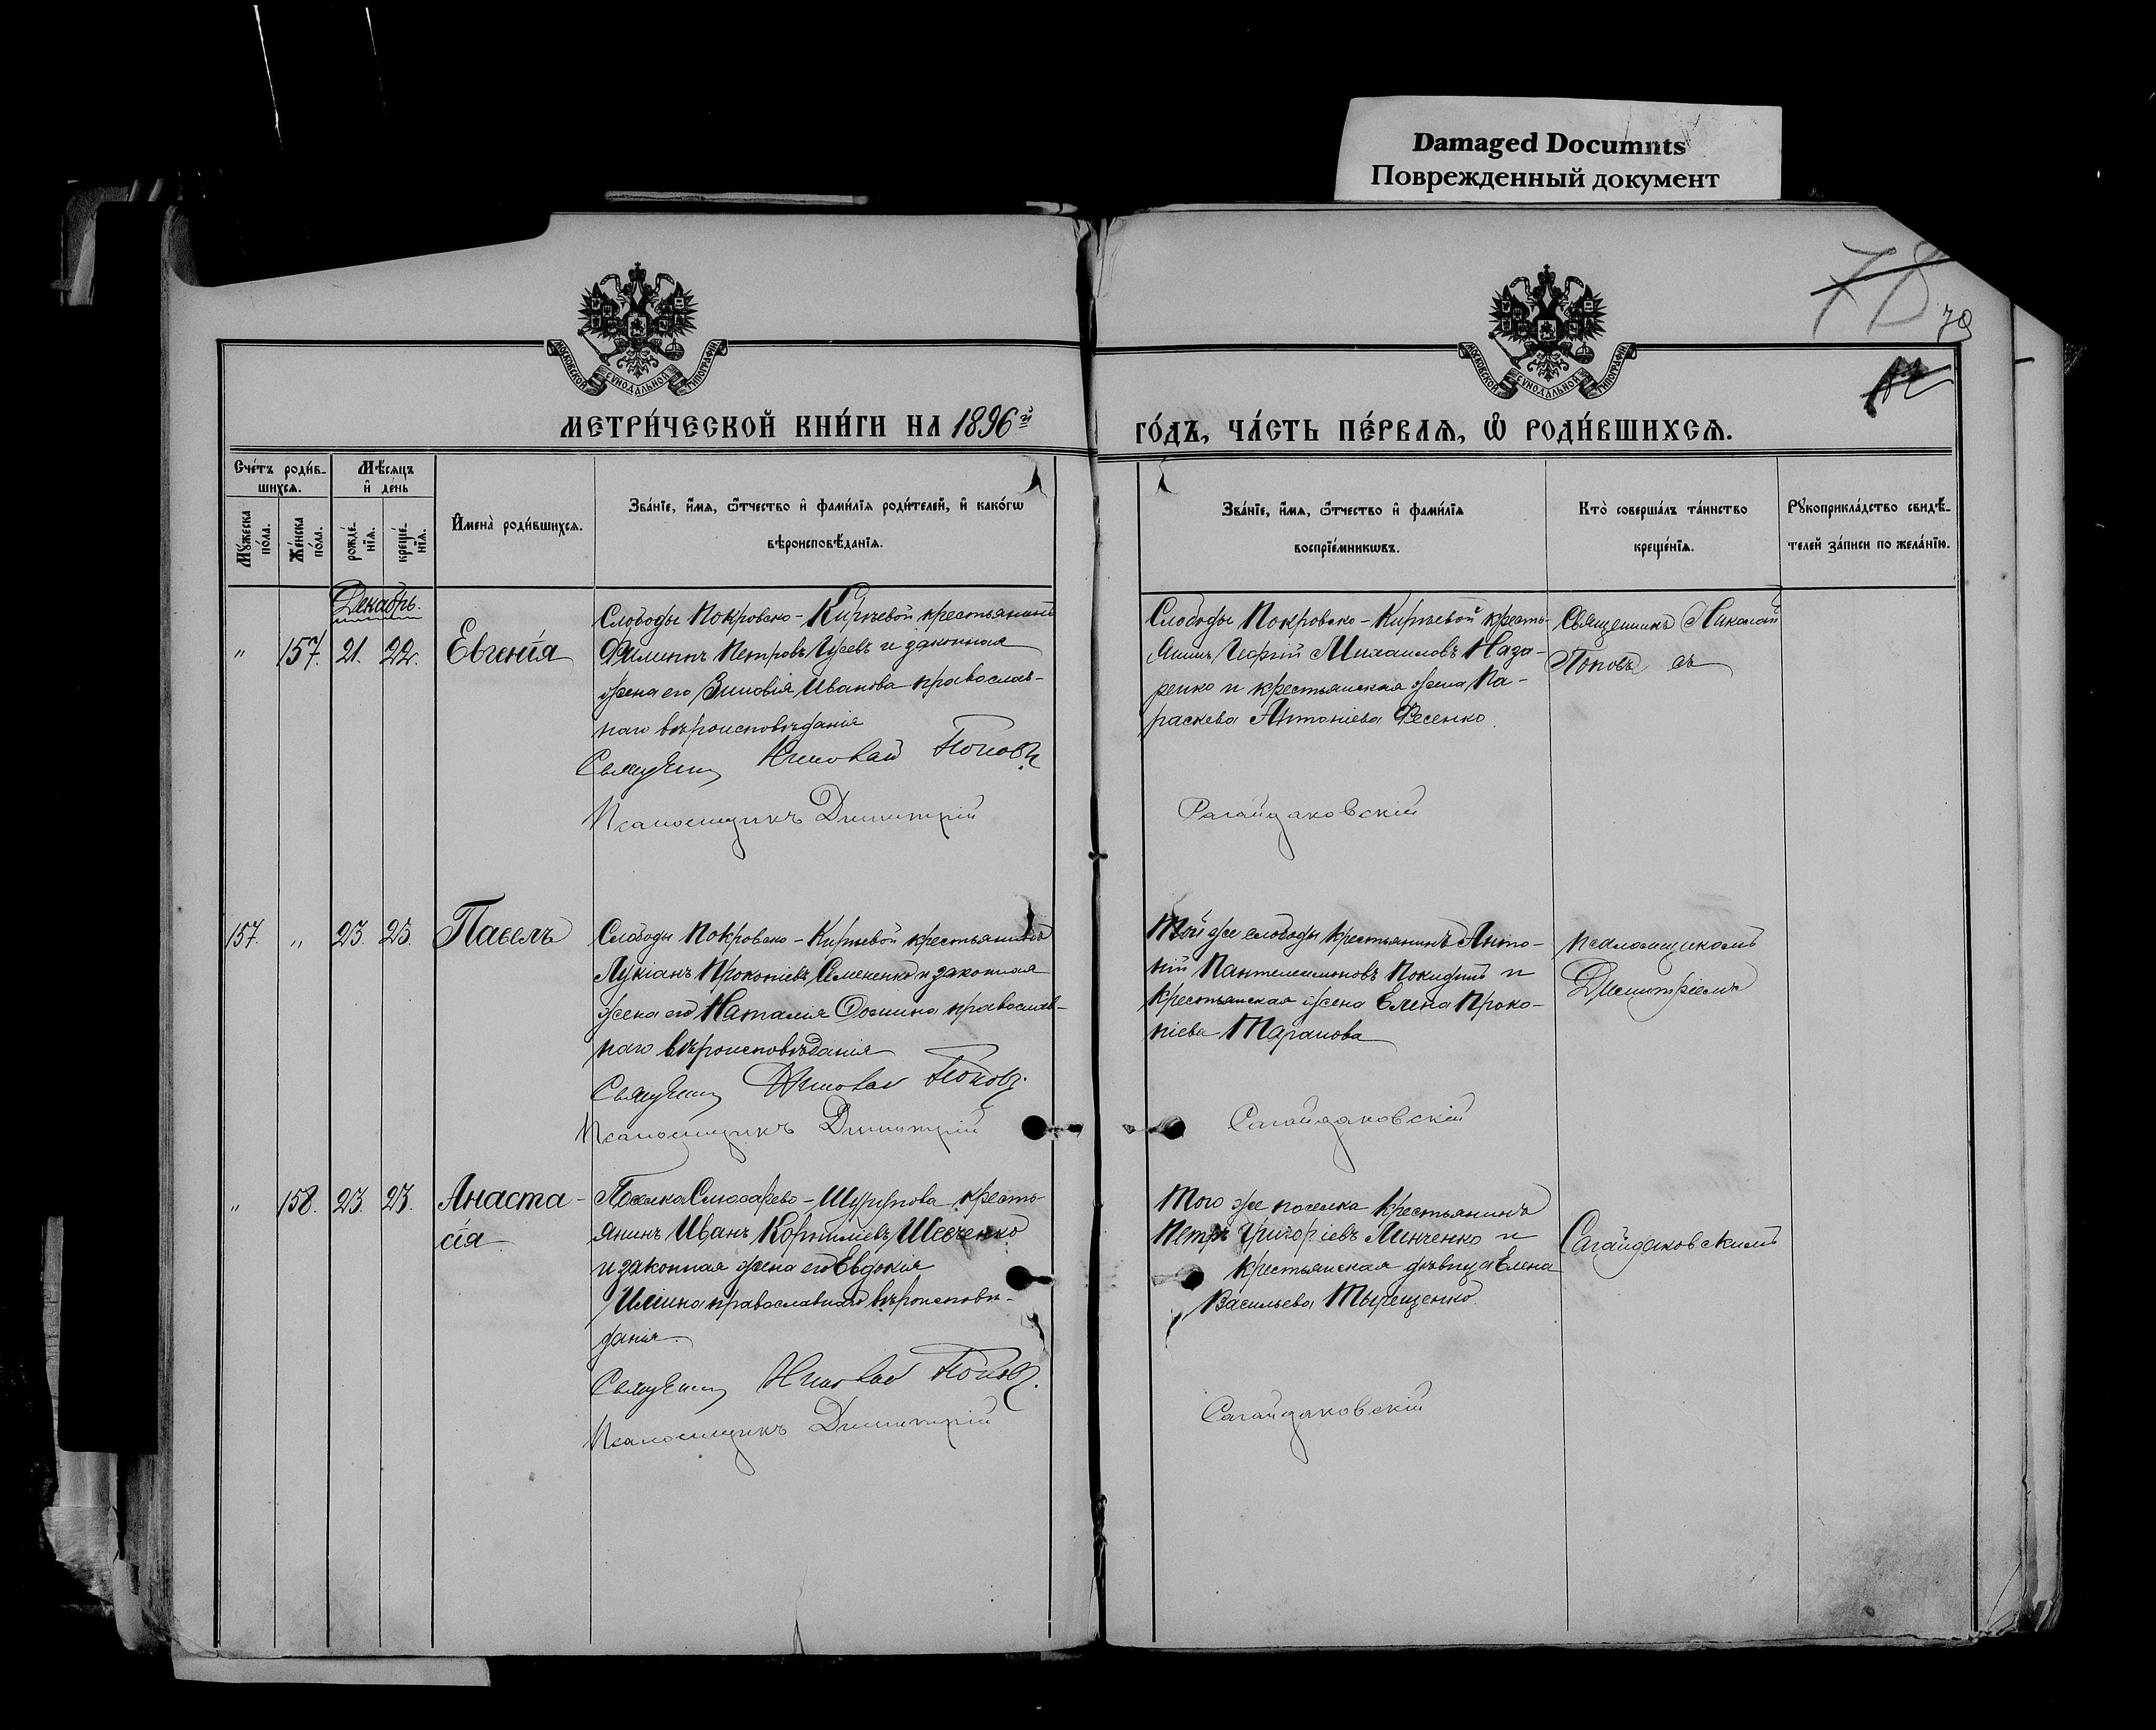 Damaged Documnts
Поврежденный документ
78
79
МОСКОВСКОЙ СѴНОДАЛЬНОЙ ТИПОГРАФІИ
МОСКОВСКОЙ СѴНОДАЛЬНОЙ ТИПОГРАФІИ
МЕТРИ́ЧЕСКОЙ КНИ́ГИ НА 1896й
ГО́ДЪ, ЧА́СТЬ ПЕ́РВАѦ, Ѿ РОДИ́ВШИХСѦ.
Сче́тъ роди́в-
шихсѧ.
Мѣ́сѧцъ
и҆ де́нь
Мꙋ́жеска по́ла.
Же́нска по́ла.
рожде́-
нїѧ.
креще́-
нїѧ.
И҆мена̀ роди́вшихсѧ.
Зва́нїе, и҆́мѧ, ѻ҆́тчество и҆ фами́лїѧ роди́телей, и҆ како́гѡ
вѣроисповѣ́данїѧ.
Зва́нїе, и҆́мѧ, ѻ҆́тчество и҆ фами́лїѧ
воспрїе́мникѡвъ.
Кто̀ соверша́лъ та́инство
креще́нїѧ.
Рꙋкоприкла́дство свидѣ́-
телей за́писи по жела́нїю.
Декабрь.
" 157. 21. 22. Евгенія
Слободы Покровско-Киреевой крестьянинъ
Филиппъ Петровъ Гусевъ и законная
жена его Зиновія Иванова православ-
наго вѣроисповѣданія
Священник Николай Поповъ
Псаломщикъ Димитрій
Слободы Покровско-Киреевой кресть-
янинъ Георгій Михаиловъ Наза-
ренко и крестьянская жена Па-
раскева Антоніева Фесенко.
Сагайдаковскій
Священникъ Николай
Поповъ съ
157. " 23. 23. Павелъ
Слободы Покровско-Киреевой крестьянинъ
Лукіанъ Прокопіевъ Семененко и законная
жена его Наталія Фомина православ-
наго вѣроисповѣданія
Священник Николай Поповъ.
Псаломщикъ Димитрій
Той же слободы крестьянинъ Анто-
ній Пантелеимоновъ и
крестьянская жена Елена Проко-
піева Таранова
Сагайдаковскій
псаломщикомъ
Димитріемъ
" 158. 23. 23. Анаста-
сія
Поселка Слюсарево- кресть-
янинъ Иванъ Корниліевъ Шевченко
и законная жена его Евдокія
Иліина православнаго вѣроисповѣ-
данія.
Священник Николай Поповъ.
Псаломщикъ Димитрій
Того же поселка крестьянинъ
Петръ Григоріевъ Минченко и
крестьянская дѣвица Елена
Васильева Тырещенко
Сагайдаковскій
Сагайдаковскимъ